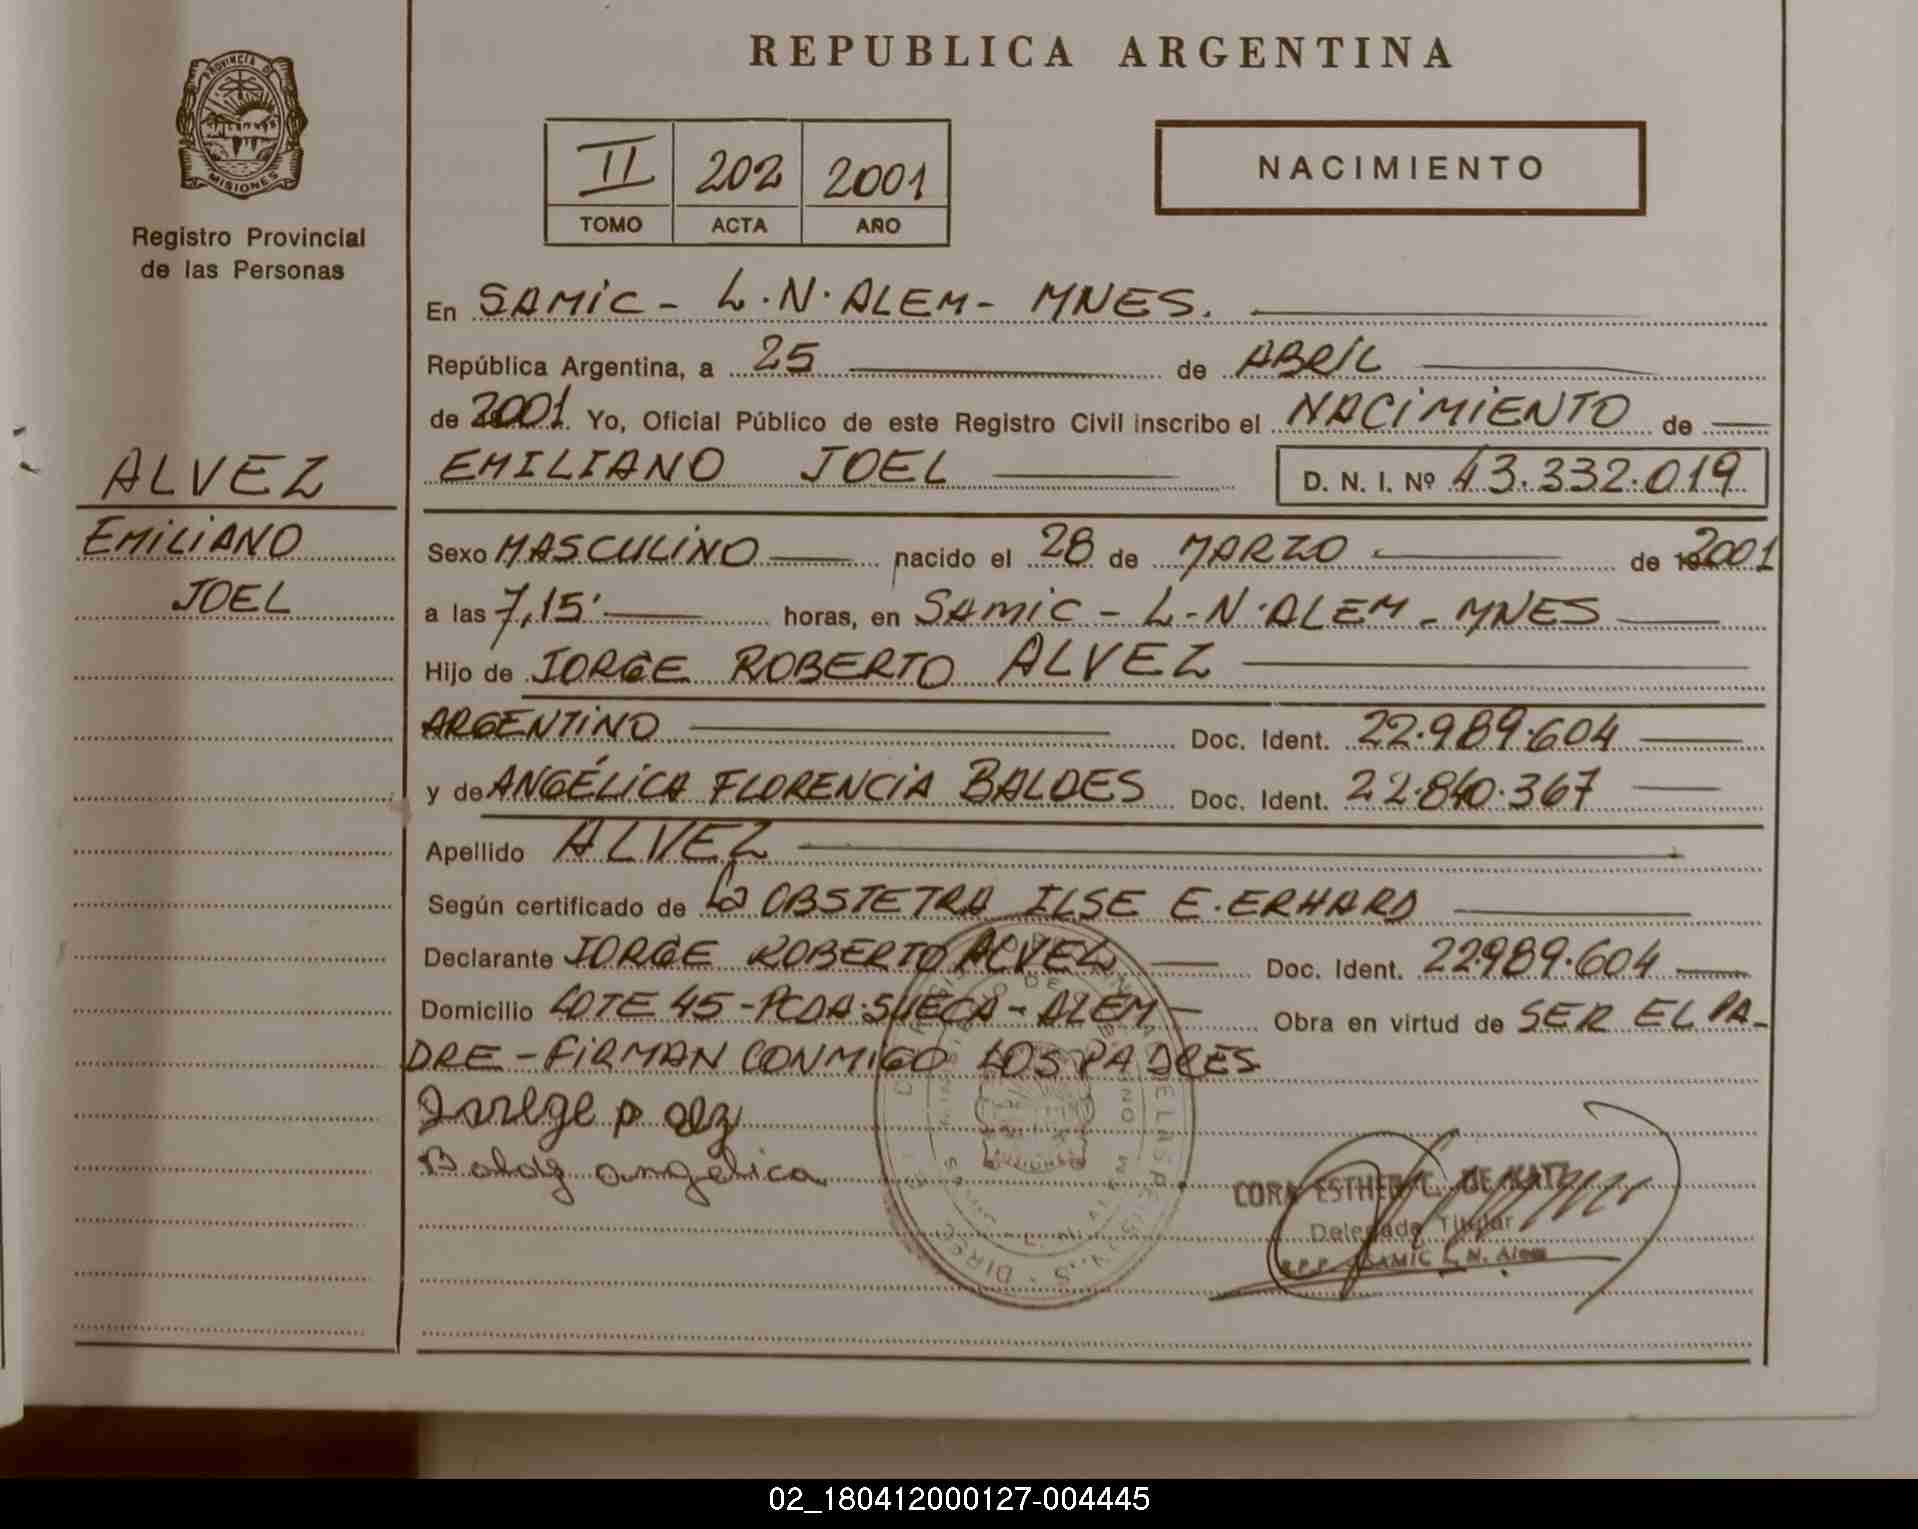 REPUBLICA ARGENTINA
PROVINCIA DE
MISIONES
Registro Provincial
de las Personas
II 202 2001
TOMO ACTA AÑO
NACIMIENTO
En SAMiC - L.N.ALEM - MNES.
República Argentina, a 25 de ABRiL
de 2001 Yo, Oficial Público de este Registro Civil inscribo el NACiMiENTO de
EMILIANO JOEL D. N. I. Nº 43.332.019
ALVEZ
EMiLiANO
JOEL
Sexo MASCULiNO nacido el 28 de MARZO de 2001
a las 7,15' horas, en SAMiC - L-N.ALEM - MNES
Hijo de JORGE ROBERTO ALVEZ
ARGENTiNO Doc. Ident. 22.989.604
y de ANGÉLiCA FLORENCiA BALDES Doc. Ident. 22.840.367
Apellido ALVEZ
Según certificado de La OBSTETRA ILSE E. ERHARD
Declarante JORGE ROBERTO ALVEZ Doc. Ident. 22989.604
Domicilio LOTE 45 - PCDA.SUECA - ALEM - Obra en virtud de SER EL PA-
DRE - FiRMAN CONMiGO LOS PADRES
angélica
CORA ESTHER C. DE KATZ
Delegada Titular
R.P.P. SAMIC L. N. Alem
02_180412000127-004445